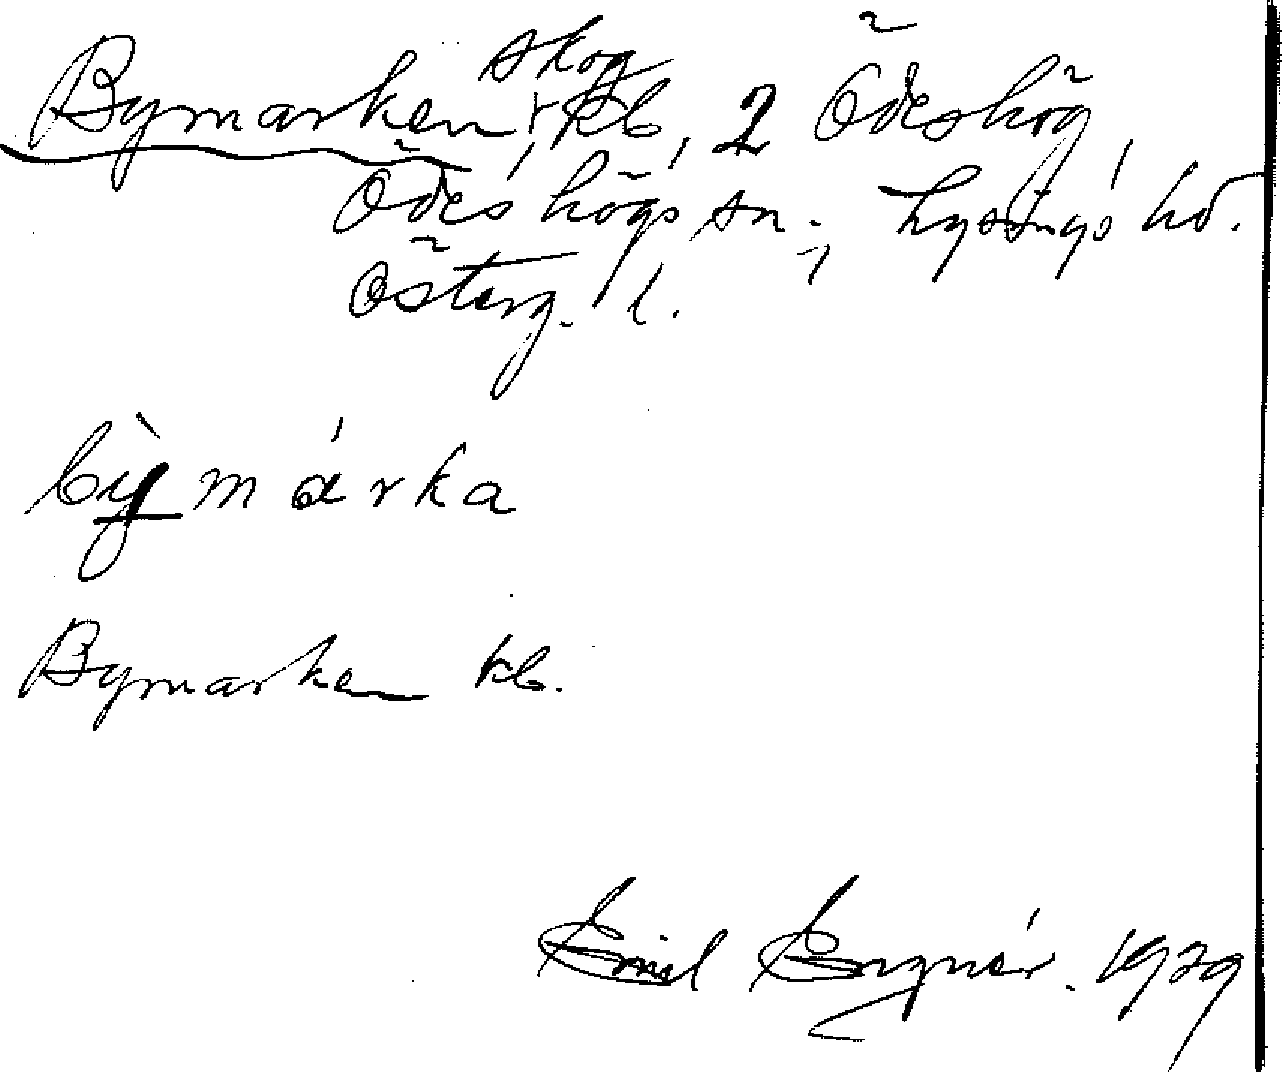 skog
Bymarken, kb, 2 Ödeshög,
Ödeshögs sn; Lysings hd.
Österg. l.
bỳmárka
Bymarken kb.
Emil Engnér. 1929